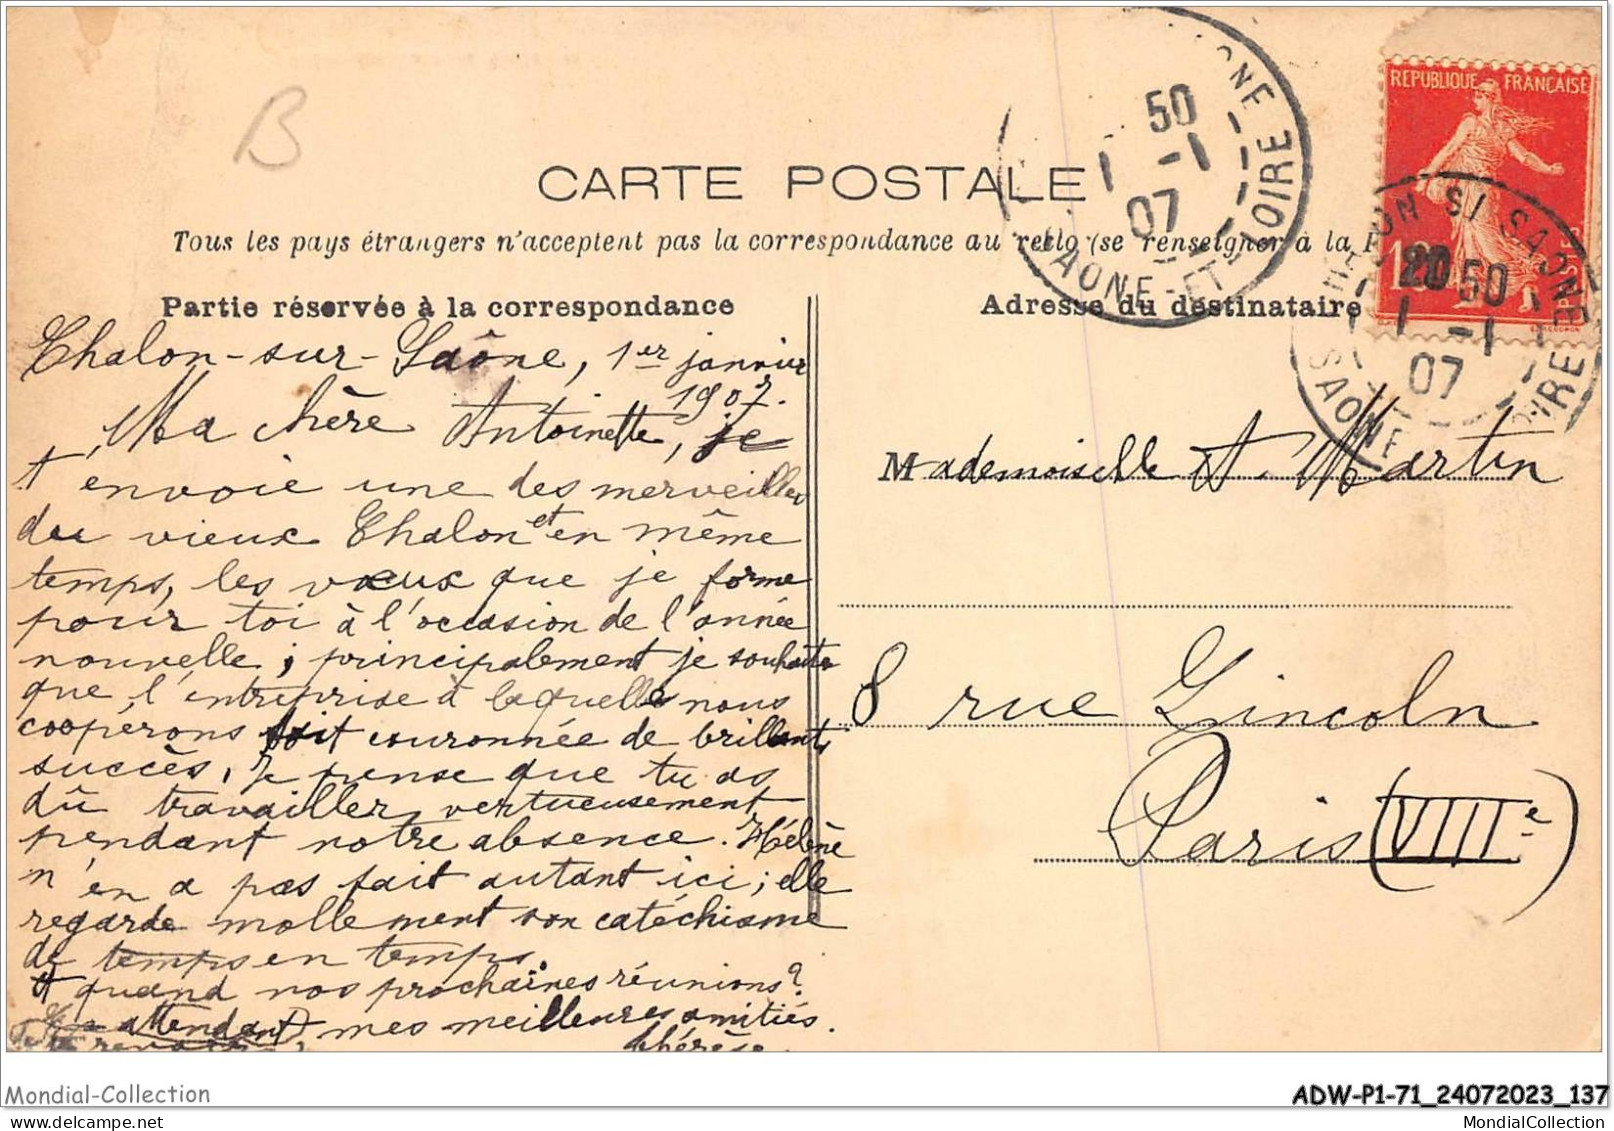 B
CARTE POSTALE
Tous les pays étrangers n'acceptent pas la correspondance au recto (se renseigner à la
Partie réservée à la correspondance
Chalon-sur-Saône, 1er janvier
1907.
Ma chère Antoinette, je
t'envoie une des merveilles
du vieux Chalon et en même
temps, les vœux que je forme
pour toi à l'occasion de l'année
nouvelle ; principalement je souhaite
que l'entreprise à laquelle nous
coopérons soit couronnée de brillants
succès. Je pense que tu as
dû travailler vertueusement
pendant notre absence. Hélène
n'en a pas fait autant ici ; elle
regarde mollement son catéchisme
de temps en temps.
A quand nos prochaines réunions ?
En attendant mes meilleures amitiés.
Thérèse
Adresse du destinataire
Mademoiselle A. Martin
8 rue Lincoln
Paris (VIIIe)
REPUBLIQUE FRANÇAISE
ONE
50
1 -1
07
SAONE-ET-LOIRE
ON S/ SAONE
20 50
1 -1
07
SAONE OIRE
Mondial-Collection
ADW-P1-71_24072023_137
MondialCollection.com